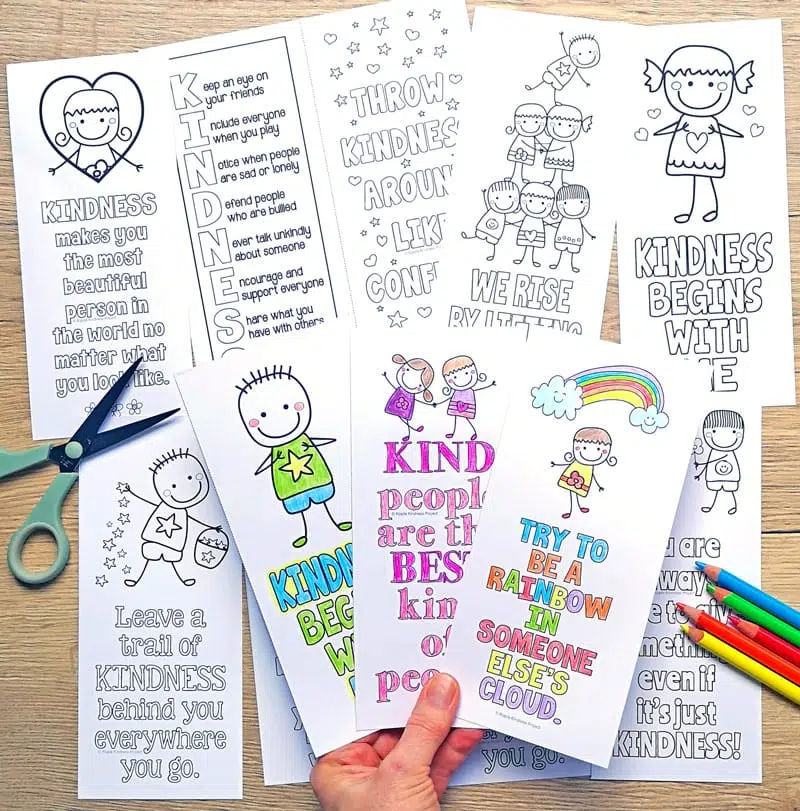 KINDNESS
makes you
the most
beautiful
person in
the world no
matter what
you look like.
Keep an eye on
your friends
Include everyone
when you play
Notice when people
are sad or lonely
Defend people
who are bullied
Never talk unkindly
about someone
Encourage and
support everyone
Share what you
have with others
S
THROW
KINDNESS
AROUN
LIK
CONF
WE RISE
BY LIFTING
KINDNESS
BEGINS
WITH
ME
Leave a
trail of
KINDNESS
behind you
everywhere
you go.
© Ripple Kindness Project
KINDN
BEG
WI
KIND
people
© Ripple Kindness Project
are th
BES
kin
of
peop
TRY TO
BE A
RAINBOW
IN
SOMEONE
ELSE'S
CLOUD.
© Ripple Kindness Project
you go.
u are
way
e to giv
methin
even if
it's just
KINDNESS!